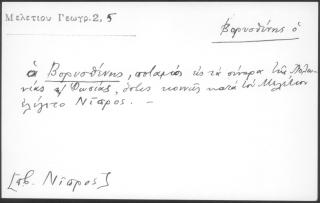 Μελετίου Γεωγρ. 2, 5
Βορυσθένης ὁ
ὁ Βορυσθένης, ποταμὸς εἰς τὰ σύνορα τῆς Πολω-
νίας καὶ Ῥωσίας, ὅστις κοινῶς κατὰ τὸν Μελέτιον
ἐλέγετο Νίπρος. —
[πβ. Νίπρος]